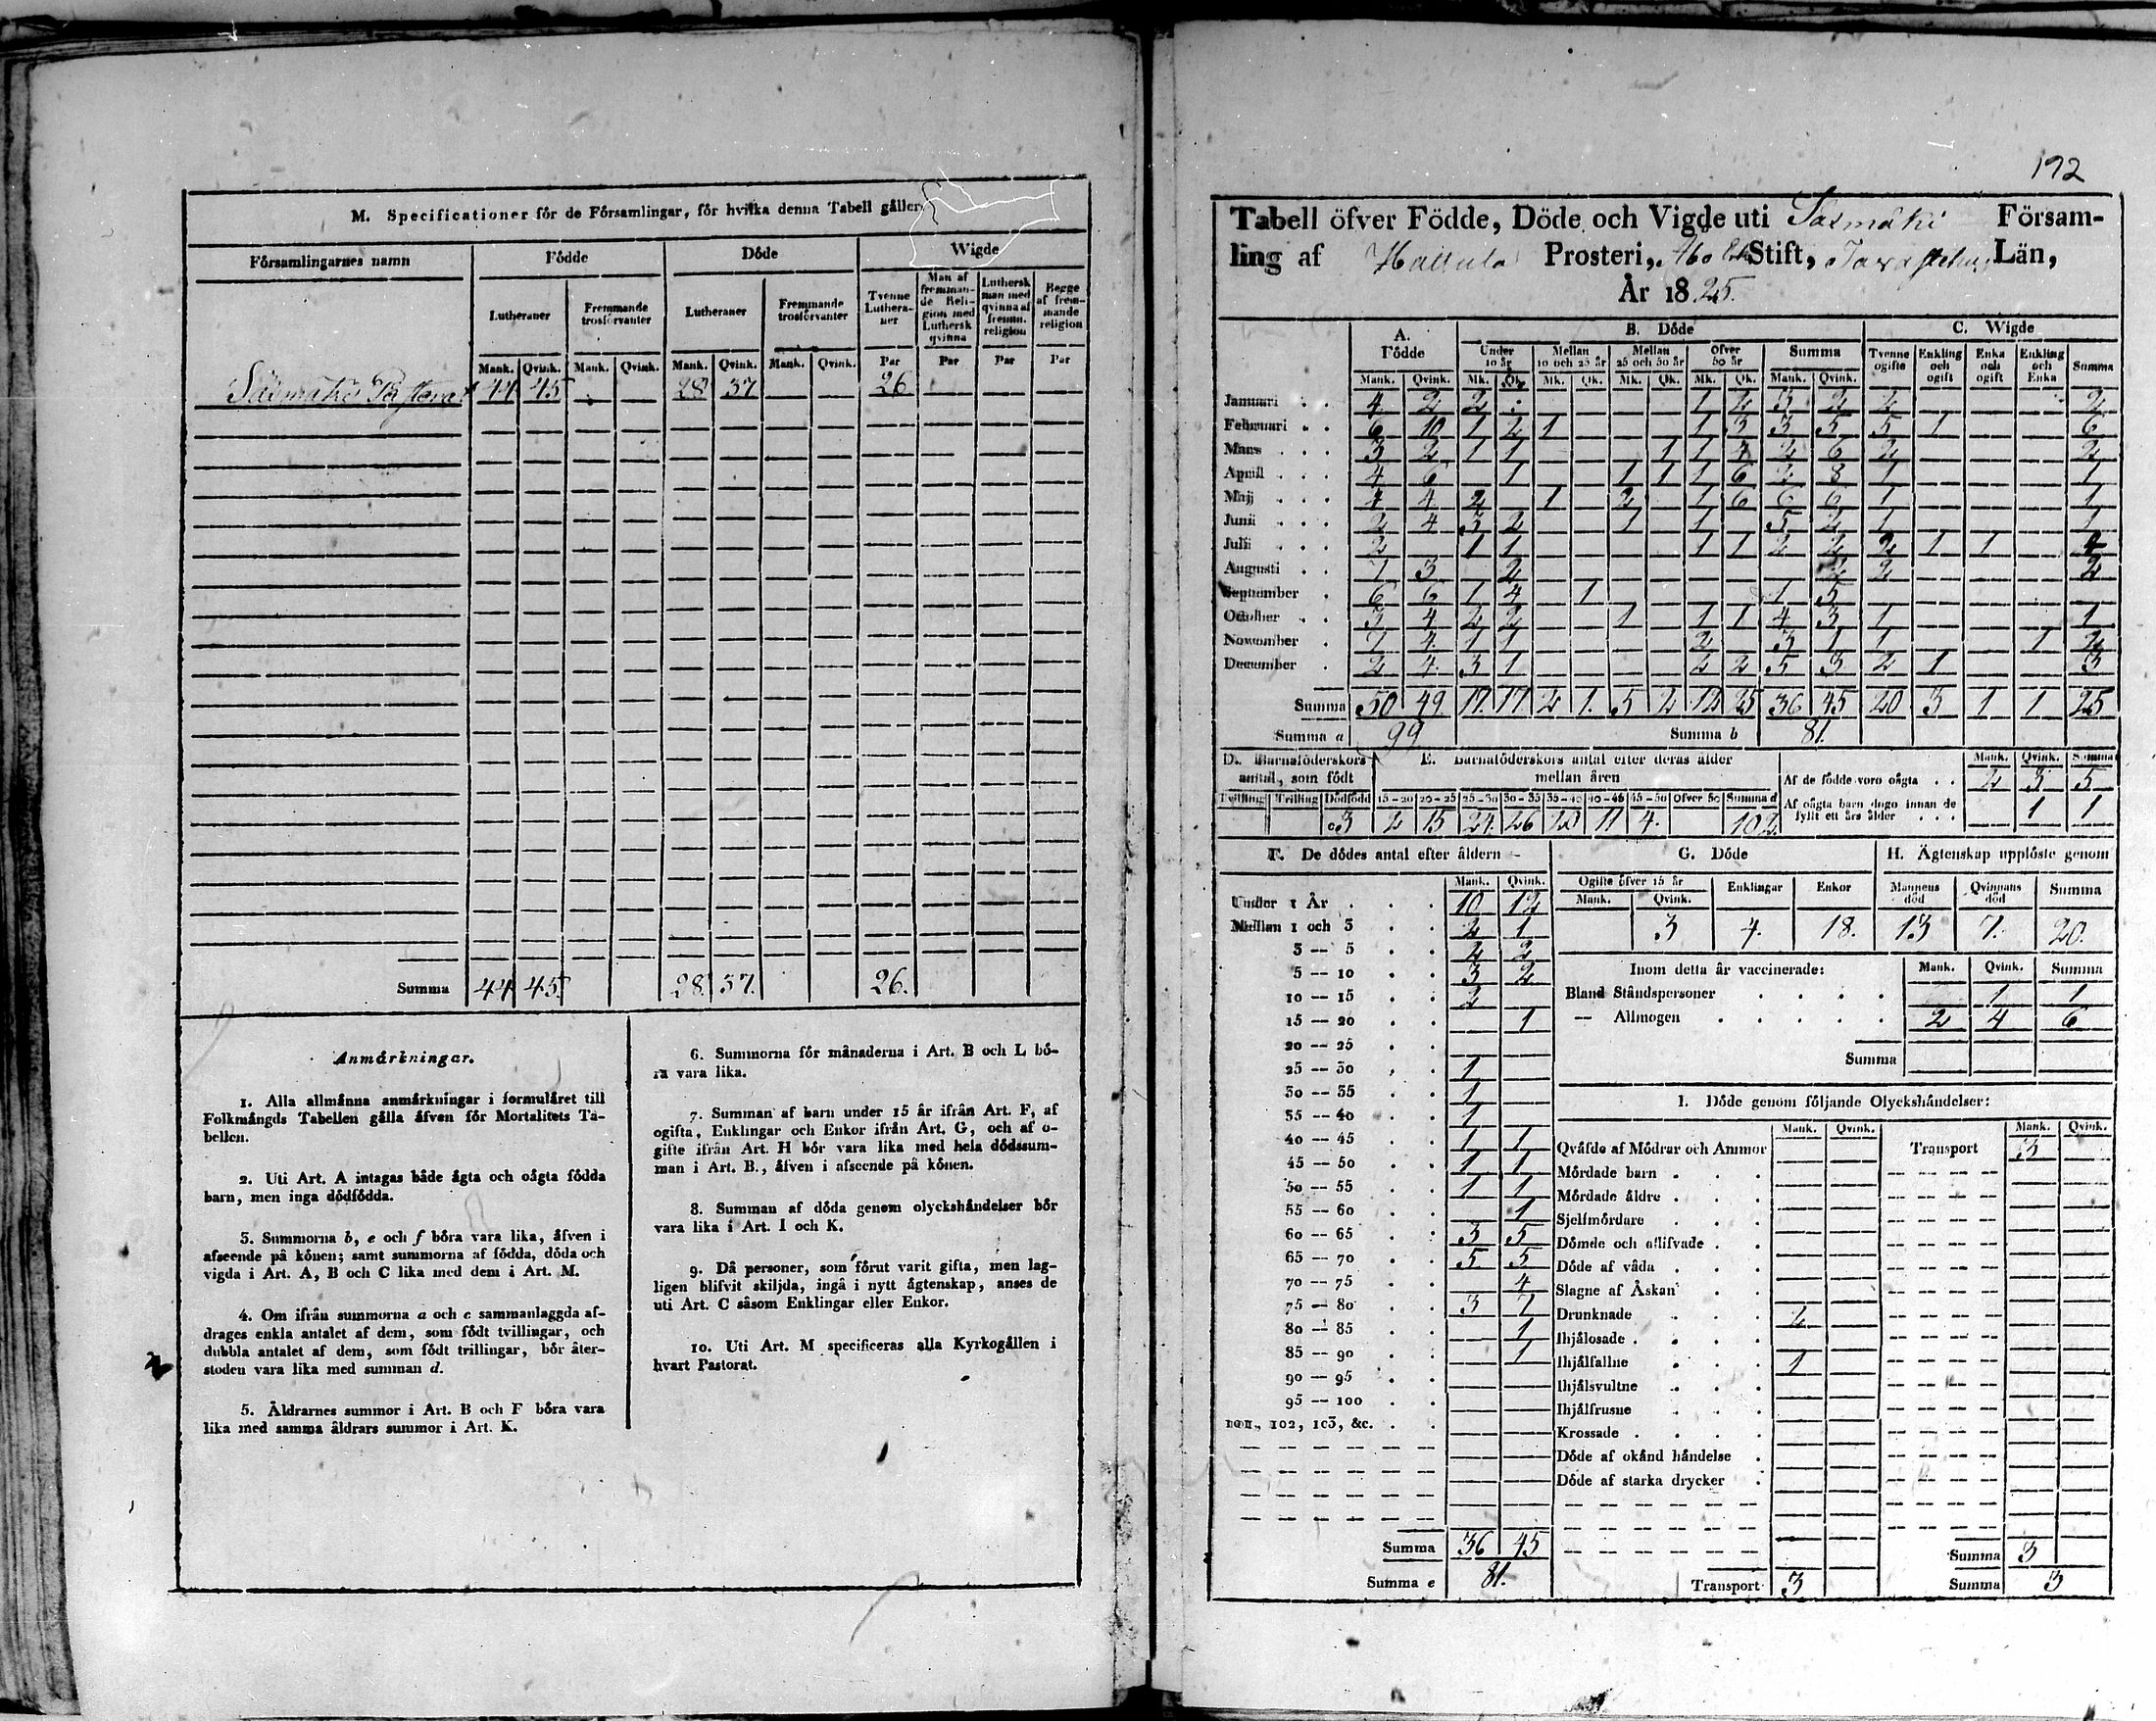 M. Specificationer för de Församlingar, för hvilka denna Tabell gäller.
Församlingarnes namn Födde Döde Wigde
Lutheraner Fremmande trosförvanter Lutheraner Fremmande trosförvanter Tvenne Lutheraner Man af fremmande Religion med Luthersk qvinna Luthersk man med qvinna af fremm. religion Begge af fremmande religion
Mank. Qvink. Mank. Qvink. Mank. Qvink. Mank. Qvink. Par Par Par Par
Säxmäki 44 45 28 37 26
Summa 44 45. 28. 37. 26.
Anmärkningar.
1. Alla allmänna anmärkningar i formuläret till
Folkmängds Tabellen gälla äfven för Mortalitets Ta-
bellen.
2. Uti Art. A intagas både ägta och oägta födda
barn, men inga dödfödda.
3. Summorna b, e och f böra vara lika, äfven i
afseende på könen; samt summorna af födda, döda och
vigda i Art. A, B och C lika med dem i Art. M.
4. Om ifrån summorna a och c sammanlaggda af-
drages enkla antalet af dem, som födt tvillingar, och
dubbla antalet af dem, som födt trillingar, bör åter-
stoden vara lika med summan d.
5. Åldrarnes summor i Art. B och F böra vara
lika med samma åldrars summor i Art. K.
6. Summorna för månaderna i Art. B och L bö-
ra vara lika.
7. Summan af barn under 15 år ifrån Art. F, af
ogifta, Enklingar och Enkor ifrån Art. G, och af o-
gifte ifrån Art. H bör vara lika med hela dödssum-
man i Art. B., äfven i afseende på könen.
8. Summan af döda genom olyckshändelser bör
vara lika i Art. I och K.
9. Då personer, som förut varit gifta, men lag-
ligen blifvit skiljda, ingå i nytt ägtenskap, anses de
uti Art. C såsom Enklingar eller Enkor.
10. Uti Art. M specificeras alla Kyrkogällen i
hvart Pastorat.
192
Tabell öfver Födde, Döde och Vigde uti Säxmäki Försam-
ling af Hattula Prosteri, Åbo Stift, Tavastehus Län,
År 1825.
A. Födde B. Döde C. Wigde
Under 10 år Mellan 10 och 25 år Mellan 25 och 50 år Öfver 50 år Summa Tvenne ogifte Enkling och ogift Enka och ogift Enkling och Enka Summa
Mank. Qvink. Mk. Qk. Mk. Qk. Mk. Qk. Mk. Qk. Mank. Qvink.
Januari 4 2 2 1 2 3 2 2 2
Februari 6 10 1 2 1 1 3 3 5 5 1 6
Mars 3 2 1 1 1 1 4 2 6 2 2
April 4 6 1 1 1 1 6 2 8 1 1
Maj 4 4 2 1 2 1 6 6 6 1 1
Junii 2 4 3 2 1 1 5 2 1 1
Julii 2 1 1 1 1 2 2 2 1 1 4
Augusti 7 3 2 2 2 2
September 6 6 1 4 1 1 5
October 3 4 2 2 1 1 1 4 3 1 1
November 7 4. 1 1 2 3 1 1 1 2
December 2 4. 3 1 2 2 5 3 2 1 3
Summa 50 49 17. 17 2 1. 5 2 12 25 36 45 20 3 1 1 25
Summa a 99 Summa b 81.
D. Barnaföderskors antal, som födt
E. Barnaföderskors antal efter deras ålder
mellan åren
Tvilling Trilling Dödfödd 15-20 20-25 25-30 30-35 35-40 40-45 45-50 Öfver 50 Summa d
c3 2 15 24. 26 20 11 4. 102
Mank. Qvink. Summa
Af de födde voro oägta 2 3 5
Af oägta barn dogo innan de
fyllt ett års ålder 1 1
F. De dödes antal efter åldern
Mank. Qvink.
Under 1 År 10 12
Mellan 1 och 3 2 1
3 — 5 2 2
5 — 10 3 2
10 — 15 2
15 — 20 1
20 — 25
25 — 30 1
30 — 35 1
35 — 40 1
40 — 45 1 1
45 — 50 1 1
50 — 55 1 1
55 — 60 1
60 — 65 3 5
65 — 70 5 5
70 — 75 4
75 — 80 3 7
80 — 85 1
85 — 90 1
90 — 95
95 — 100
101, 102, 103, &c.
Summa 36 45
Summa e 81.
G. Döde
Ogifte öfver 15 år Enklingar Enkor
Mank. Qvink.
3 4. 18.
H. Ägtenskap upplöste genom
Mannens död Qvinnans död Summa
13 7. 20.
Inom detta år vaccinerade: Mank. Qvink. Summa
Bland Ståndspersoner 1 1
— Allmogen 2 4 6
Summa
I. Döde genom följande Olyckshändelser:
Mank. Qvink. Mank. Qvink.
Qväfde af Mödrar och Ammor Transport 3
Mördade barn
Mördade äldre
Sjelfmördare
Dömde och aflifvade
Döde af våda
Slagne af Åskan
Drunknade 2
Ihjälosade
Ihjälfallne 1
Ihjälsvultne
Ihjälfrusne
Krossade
Döde af okänd händelse
Döde af starka drycker
Summa 3
Transport 3 Summa 3